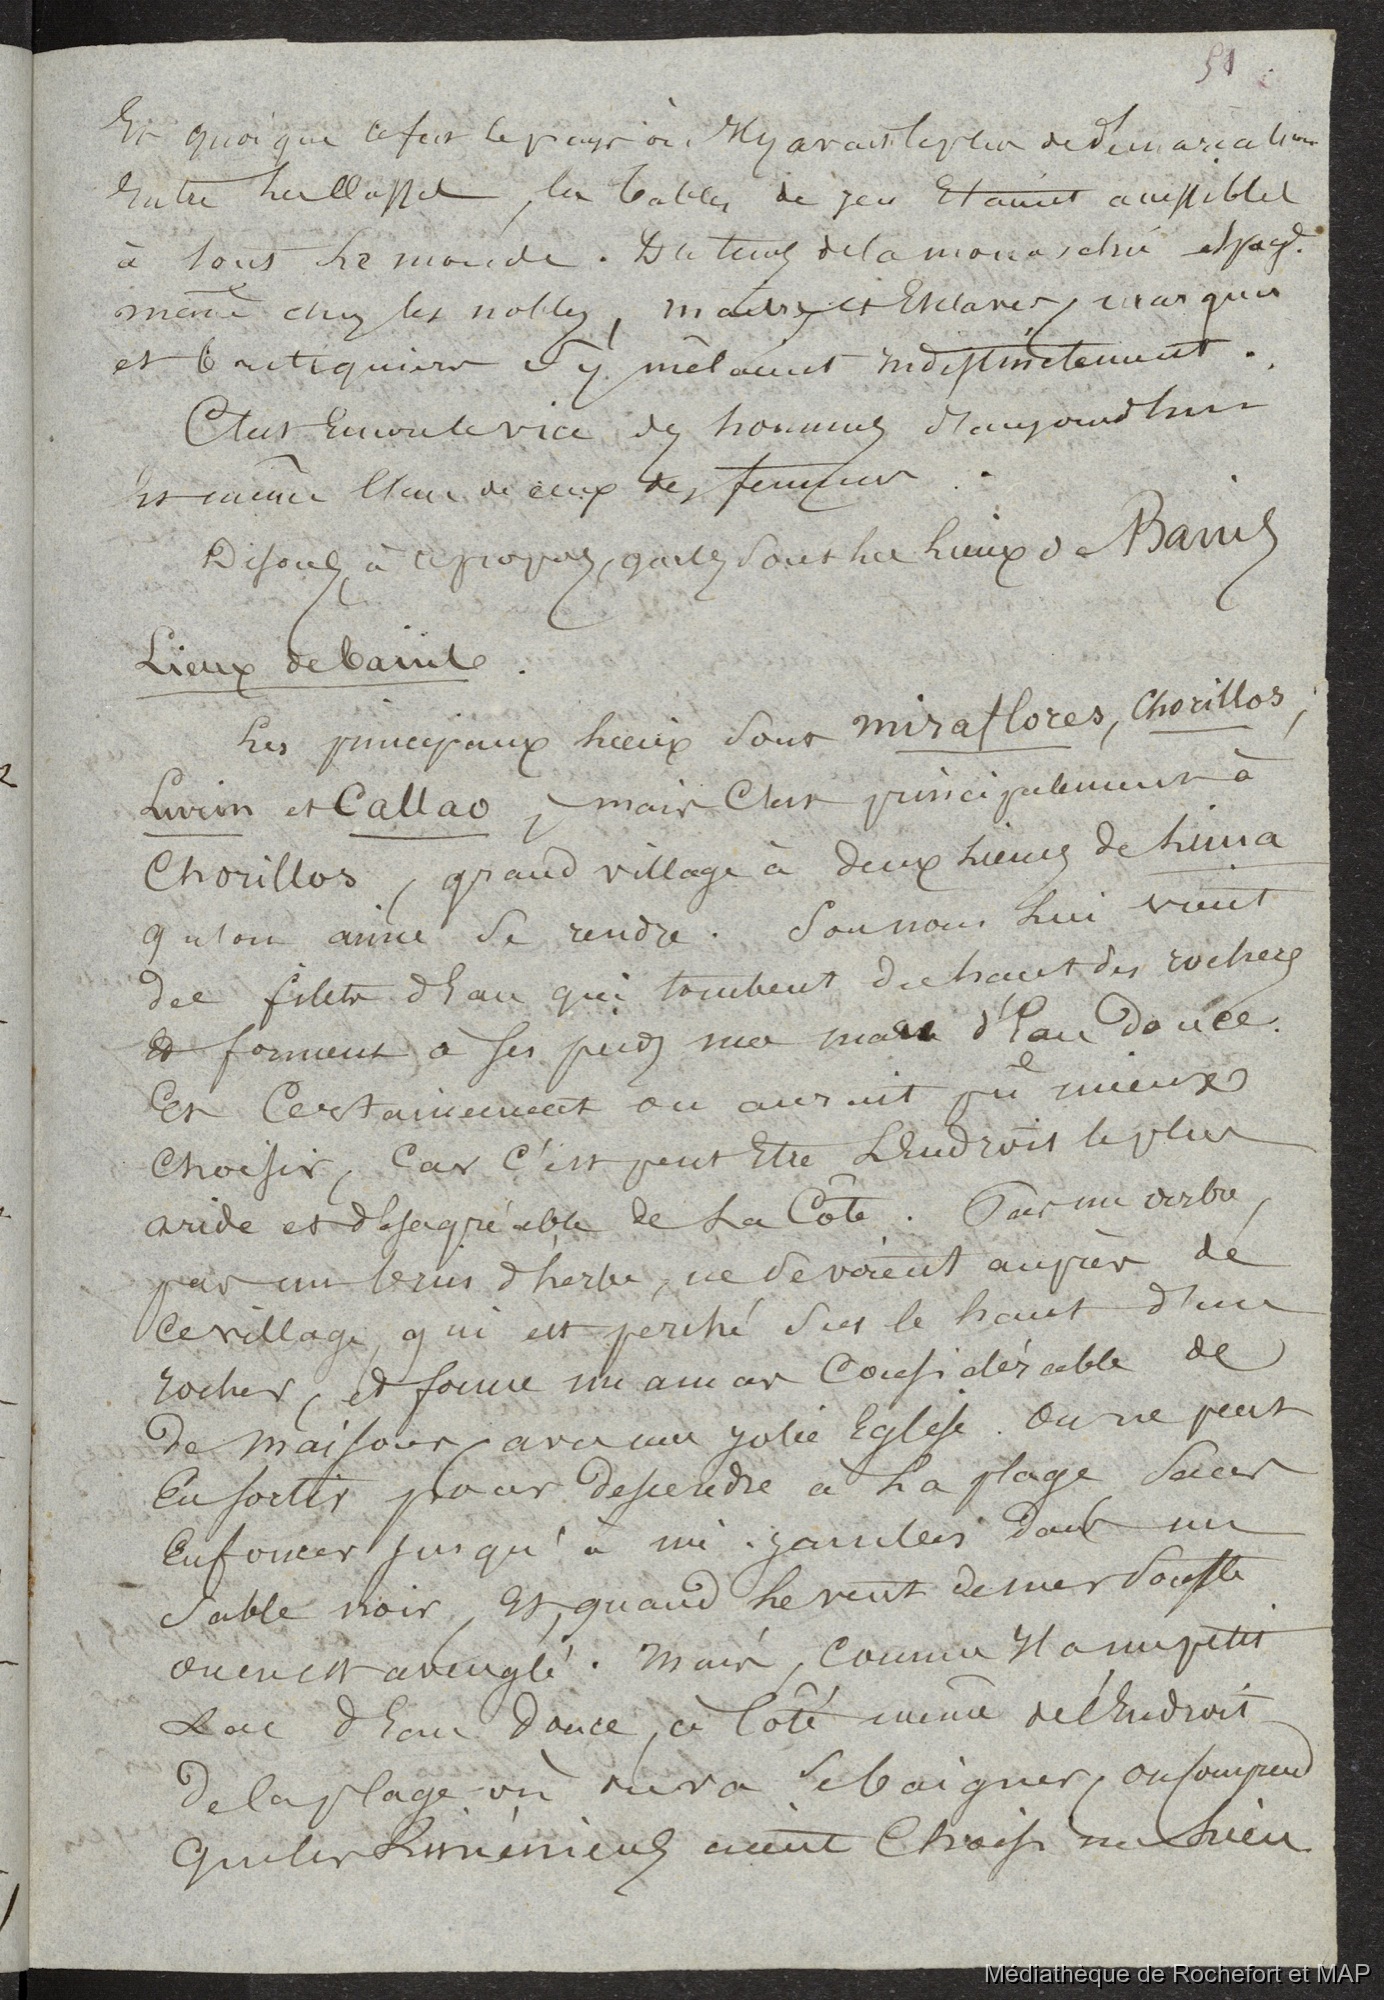 51
Et quoique ce fut le pays où il y avait le plus de démarcation
Entre les Classes, les tables de jeu Etaient accessibles
à tout le monde. Du tems de la monarchie espagle.
même chez les nobles, maitres et Esclaves, marquis
et boutiquiers s'y mêlaient indistinctement.
C'est Encore le vice des hommes d'aujourd'hui
Et même l'un de ceux des femmes.
Disons, à ce propos, quels sont les Lieux de Bains
Lieux de bains.
Les principaux lieux sont Miraflores, Chorillos,
Lurin et Callao, mais C'est principalement à
Chorillos, grand village à deux lieues de Lima
qu'on aime se rendre. Son nom lui vient
des filets d'Eau qui tombent du haut des rochers
et forment à ses pieds une mare d'Eau douce.
Et Certainement on aurait pu mieux
Choisir, Car c'est peut Etre L'Endroit le plus
aride et désagréable de La Côte. Pas un arbre,
pas un brin d'herbe, ne se voient auprès de
Ce village, qui est perché sur le haut d'un
rocher, et forme un amas Considérable de
de maisons, avec une jolie Eglise. On ne peut
En sortir pour descendre à La plage sans
Enfoncer jusqu'à mi-jambes dans un
Sable noir, Et, quand le vent de mer souffle
on en est aveuglé. Mais, comme il a un petit
Lac d'Eau douce, à Côté même de l'Endroit
de la plage où on va se baigner, on comprend
que les Liméniens aient Choisi un lieu
Médiathèque de Rochefort et MAP